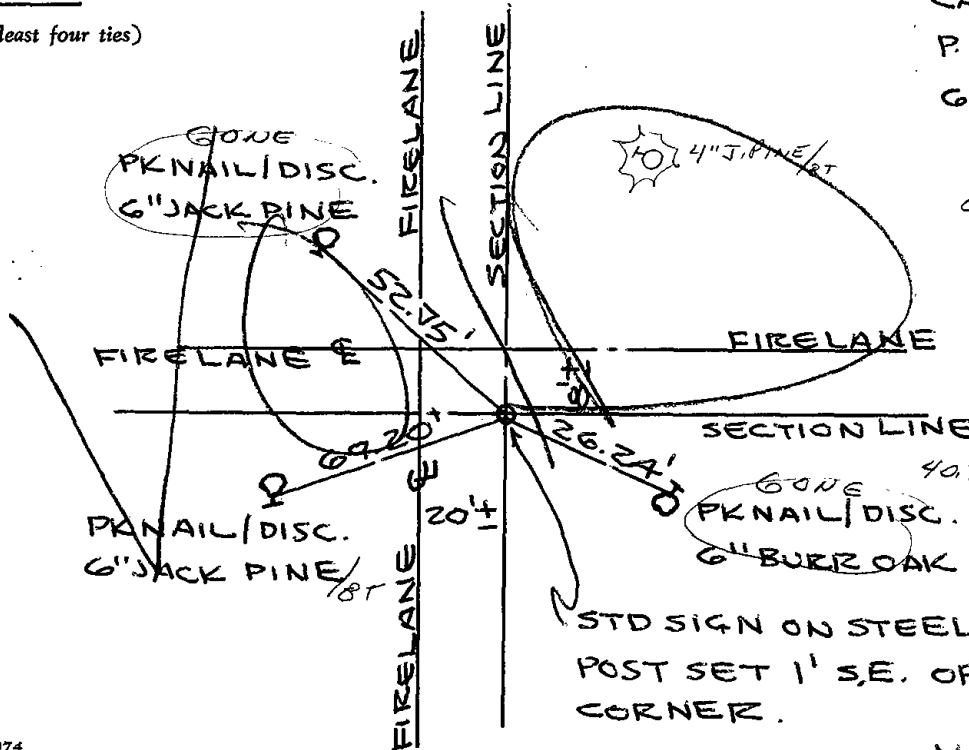 least four ties)
P.
GONE
PK NAIL/DISC.
6" JACK PINE
FIRELANE
SECTION LINE
4" J. PINE/BT
52.75'
FIRELANE ℄
FIRELANE
8'±
SECTION LINE
69.20'
26.24'
℄
20'±
40.
GONE
PK NAIL/DISC.
6" BURR OAK
PK NAIL/DISC.
6" JACK PINE/BT
FIRELANE
STD SIGN ON STEEL
POST SET 1' S.E. OF
CORNER.